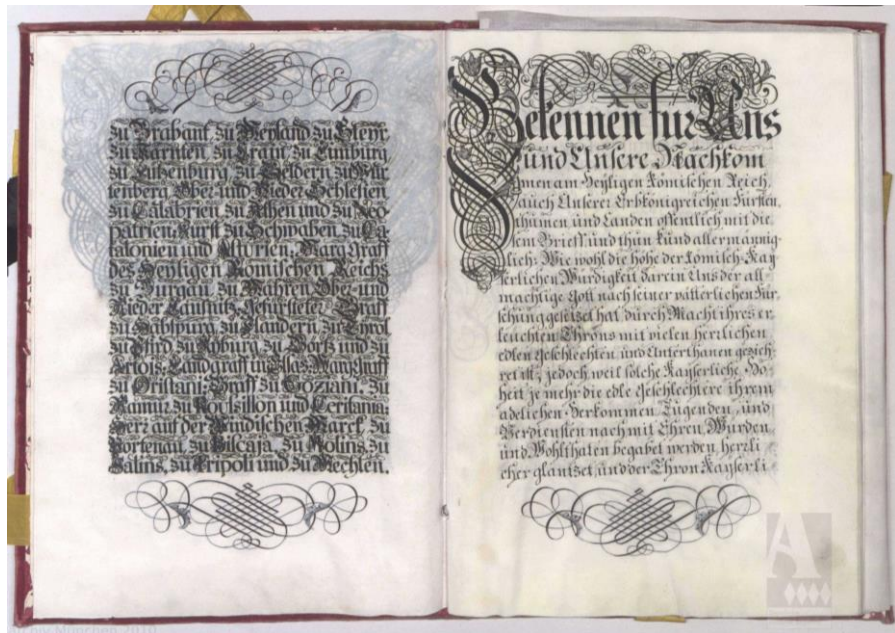 zu Braband, zu Meyland zu Steyr,
zu Kärnten, zu Crain, zu Limburg
zu Lützenburg, zu Geldern zu Wür-
tenberg, Ober- und Nieder Schlesien
zu Calabrien, zu Athen und zu Neo-
patrien; Fürst zu Schwaben, zu Ca-
talonien und Asturien; Marg-Graff
des Heyligen Römischen Reichs
zu Burgau, zu Mähren, Ober- und
Nieder Laußnitz; Gefürsteter Graff
zu Habspurg, zu Flandern, zu Tyrol
zu Pfird, zu Kyburg, zu Görtz und zu
Artois; Landgraff in Elsas; Marggraff
zu Oristani; Graff zu Goziani, zu
Namur, zu Roussillon und Ceritania;
Herr auf der Windischen Marck, zu
Portenau, zu Biscaja, zu Molins, zu
Salins, zu Tripoli und zu Mecheln.
Bekennen für Uns
und Unsere Nachkom
men am Heyligen Römischen Reich,
auch Unserer Erbkönigreichen Fürsten,
thümen, und Landen offentlich mit die
sem Brieff und thun kund allermännig-
lich: Wie wohl die höhe der Römisch-Kay
serlichen Würdigkeit darein Uns der all
mächtige Gott nach seiner vätterlichen Für,
sehung gesetzet hat, durch Macht ihres er
leuchten Throns mit vielen herrlichen
edlen Geschlechten, und Unterthanen gezieh-
ret ist, jedoch weil solche Kayserliche Ho-
heit je mehr die edle Geschlechtere ihrem
adelichen Herkommen Tugenden, und
Verdiensten nach mit Ehren, Würden
und Wohlthaten begabet werden, herrli
cher glantzet, und der Thron Kayserli